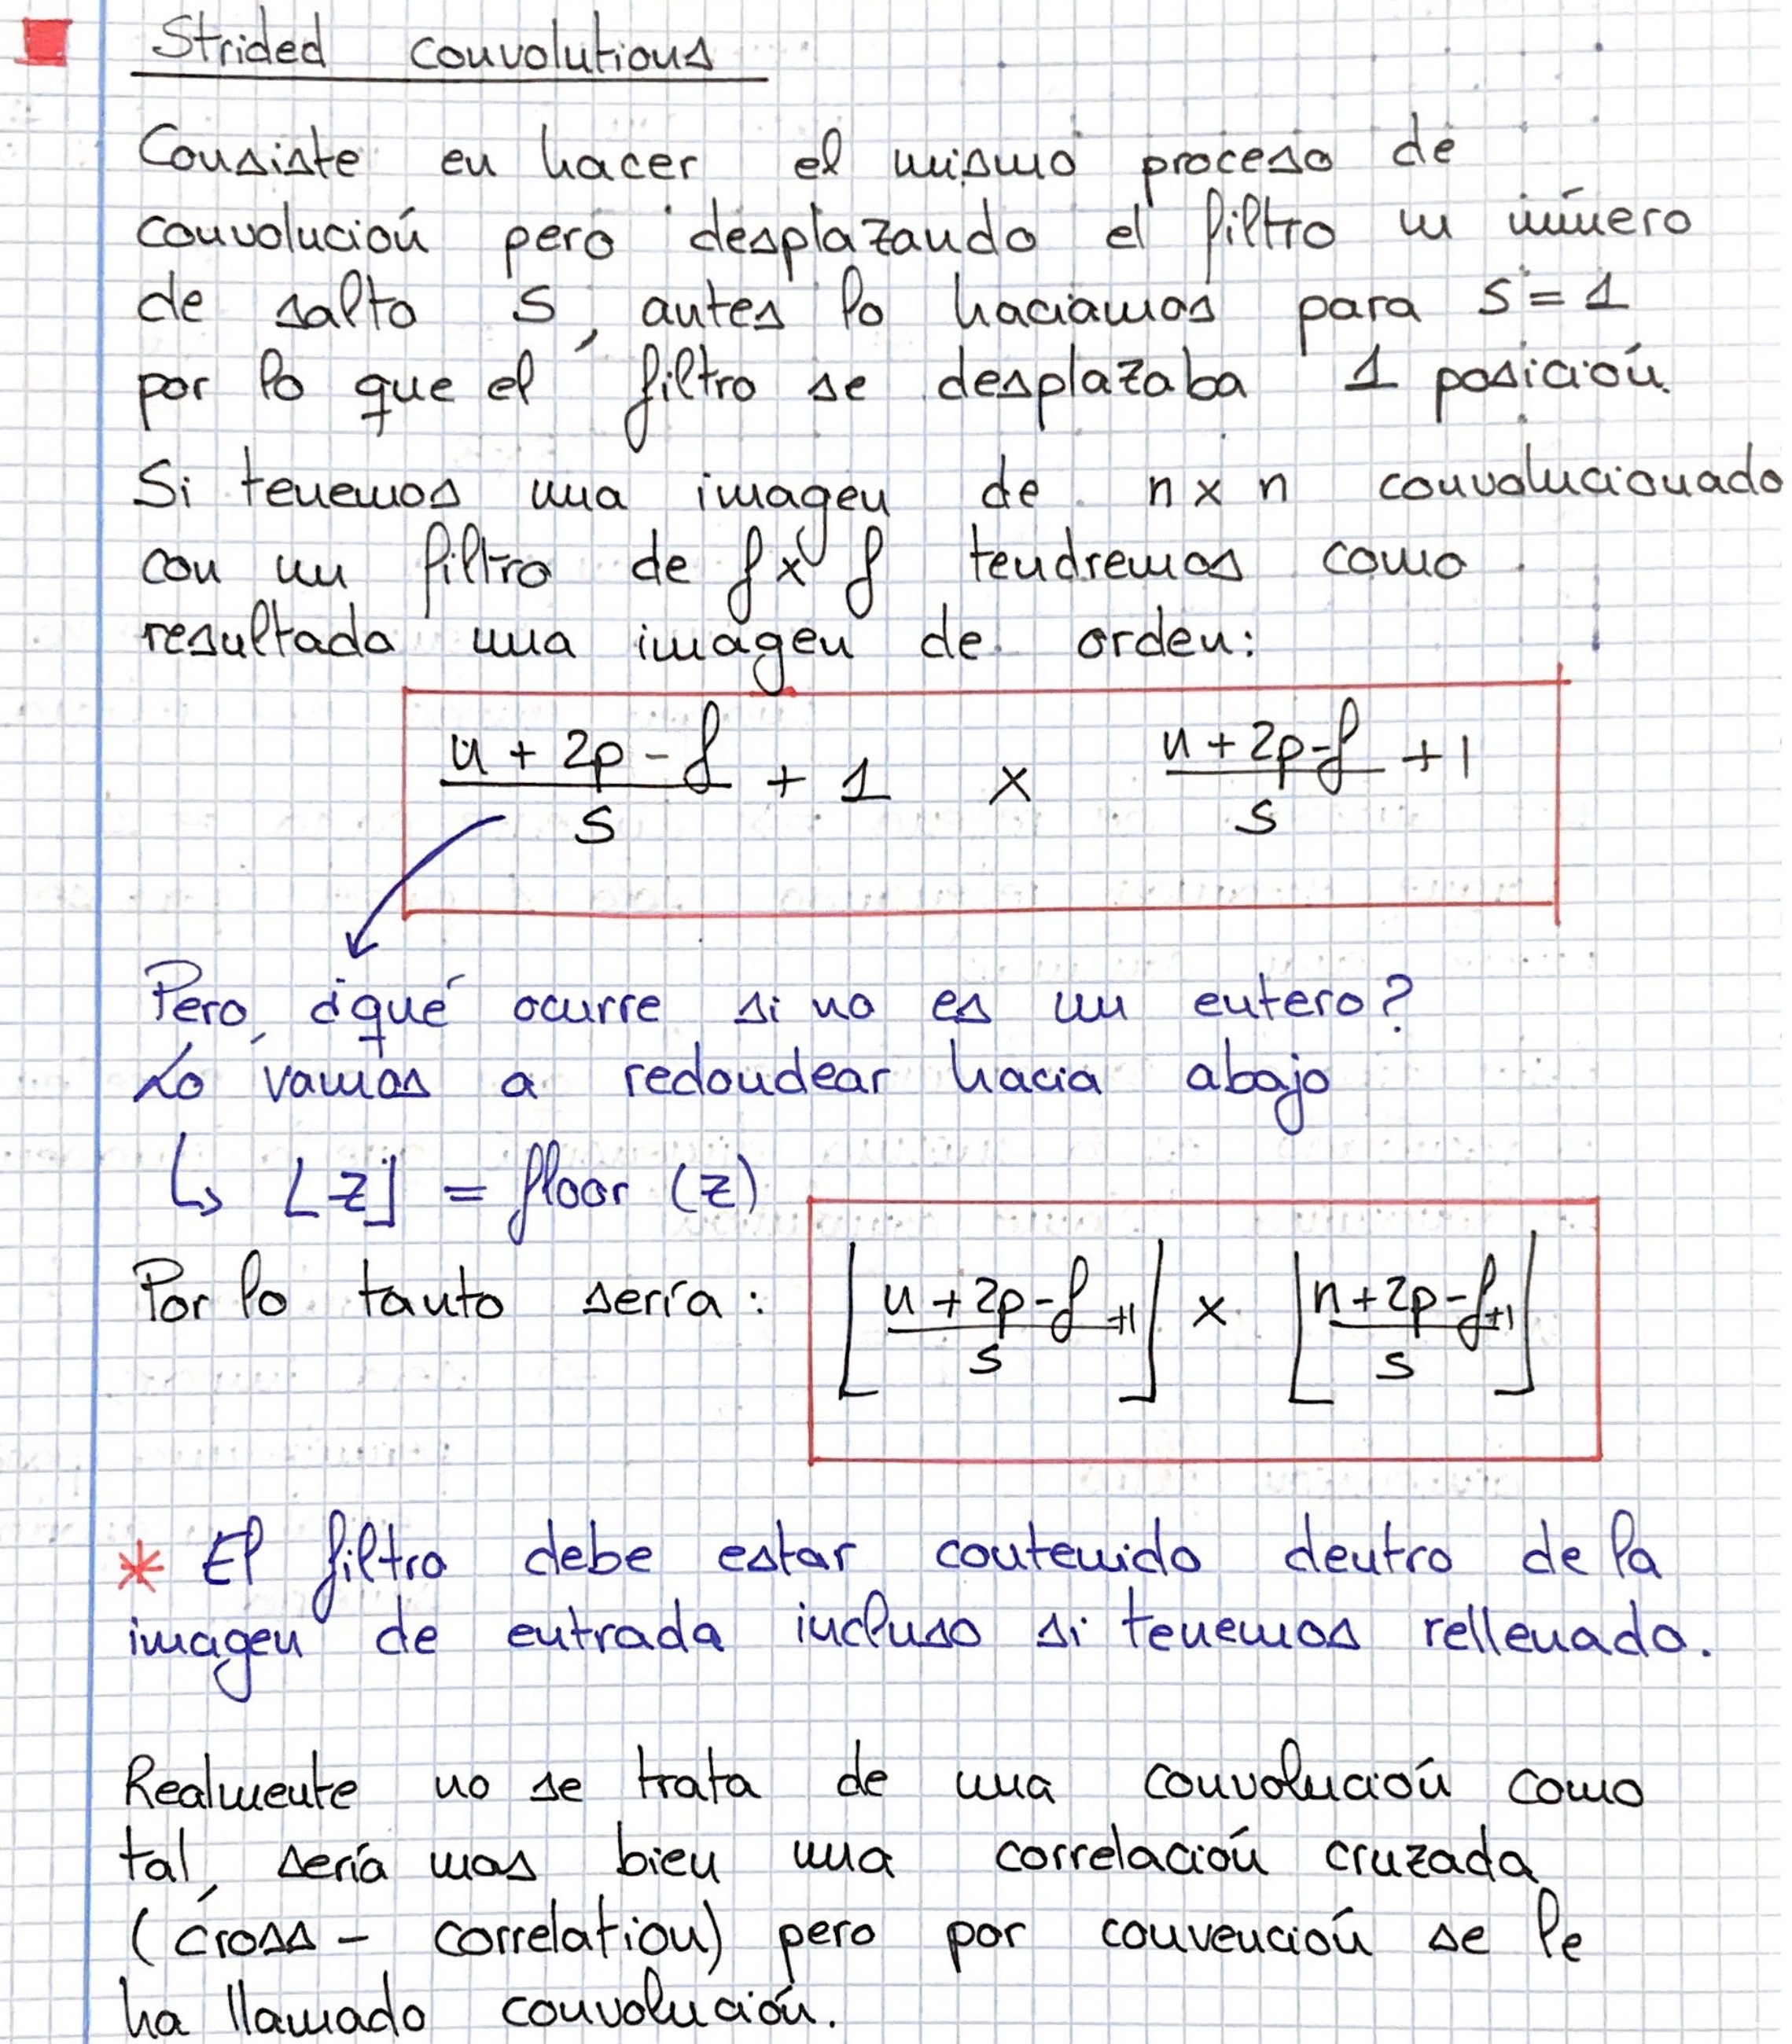 Strided convolutions
Consiste en hacer el mismo proceso de
convolución pero desplazando el filtro un número
de salto S, antes lo haciamos para S = 1
por lo que el filtro se desplazaba 1 posición.
Si tenemos una imagen de n x n convolucionado
con un filtro de f x f tendremos como
resultado una imagen de orden:
(n + 2p - f)/s + 1 x (n + 2p - f)/s + 1
Pero, ¿qué ocurre si no es un entero?
Lo vamos a redondear hacia abajo
↳ ⌊z⌋ = floor (z)
Por lo tanto sería: ⌊(n + 2p - f + 1)/s⌋ x ⌊(n + 2p - f + 1)/s⌋
* El filtro debe estar contenido dentro de la
imagen de entrada incluso si tenemos rellenado.
Realmente no se trata de una convolución como
tal, sería mas bien una correlación cruzada
(cross - correlation) pero por convención se le
ha llamado convolución.